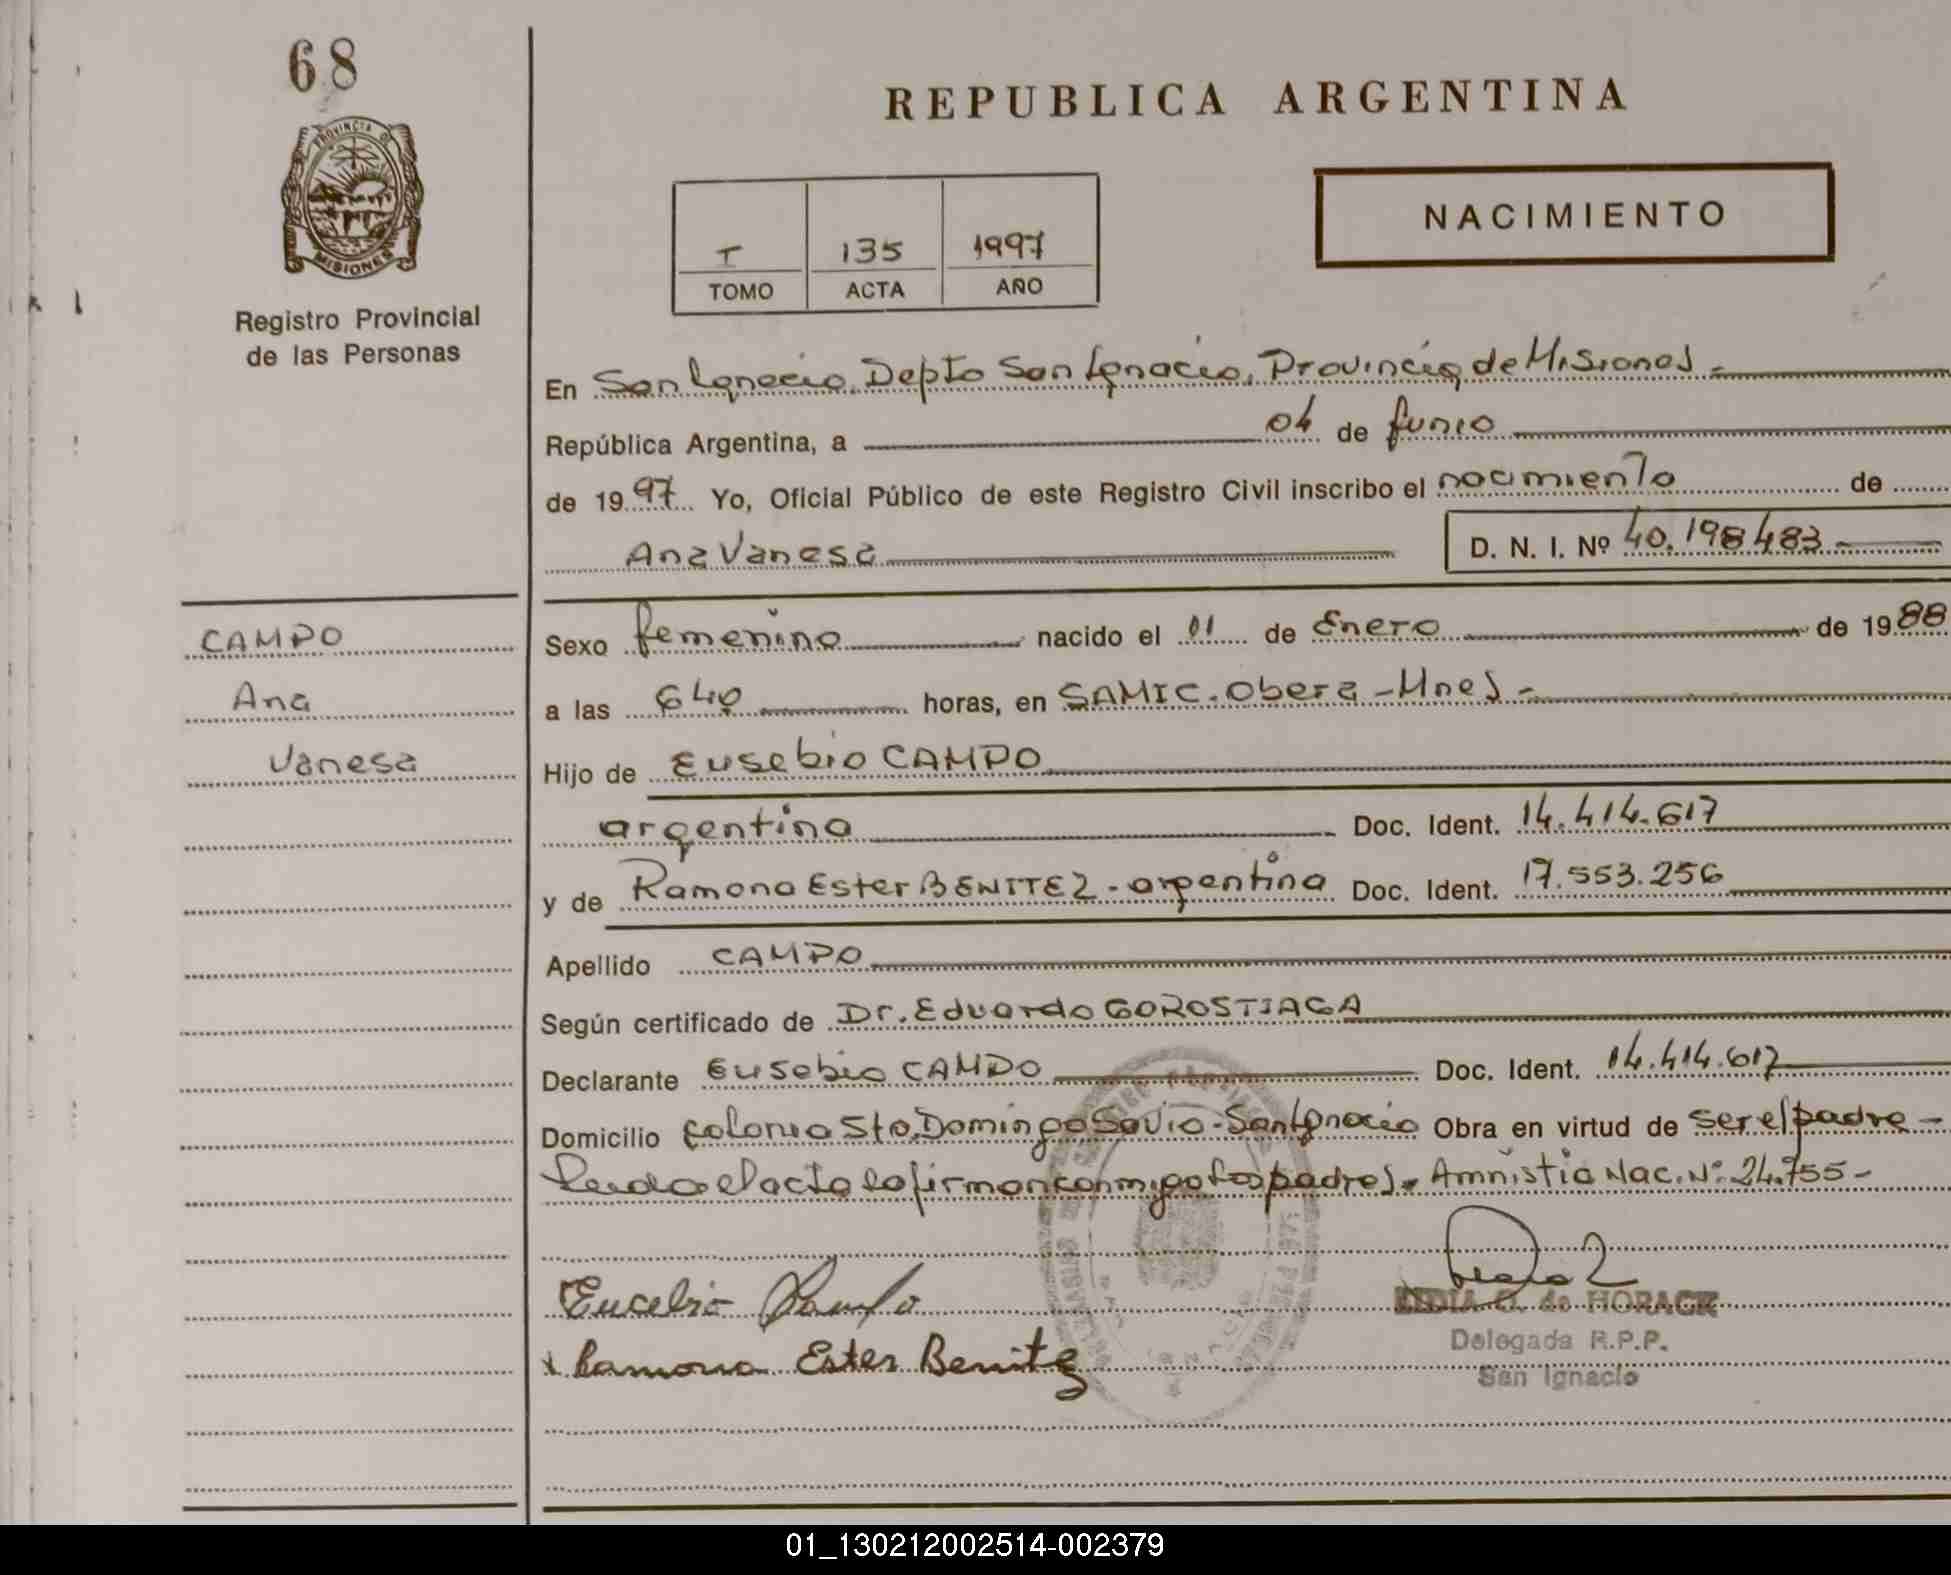 68
PROVINCIA D
MISIONES
Registro Provincial
de las Personas
REPUBLICA ARGENTINA
NACIMIENTO
I 135 1997
TOMO ACTA AÑO
En San Ignacio, Depto San Ignacio, Provincia de Misiones -
República Argentina, a 04 de Junio
de 1997 Yo, Oficial Público de este Registro Civil inscribo el nacimiento de
Ana Vanesa D. N. I. Nº 40.198483
CAMPO
Ana
Vanesa
Sexo femenino nacido el 01 de Enero de 1988
a las 640 horas, en SAMIC. Obera - Mnes -
Hijo de Eusebio CAMPO
argentino Doc. Ident. 14.414.617
y de Ramona Ester BENITEZ - argentina Doc. Ident. 17.553.256
Apellido CAMPO
Según certificado de Dr. Eduardo GOROSTIAGA
Declarante Eusebio CAMPO Doc. Ident. 14.414.617
Domicilio Colonia Sto. Domingo Savio - San Ignacio Obra en virtud de ser el padre -
Leida el acta la firman conmigo los padres. Amnistia Nac. Nº 24.755 -
Eucebio Campo
Ramona Ester Benitez
LIDIA O. de HORACK
Delegada R.P.P.
San Ignacio
01_130212002514-002379